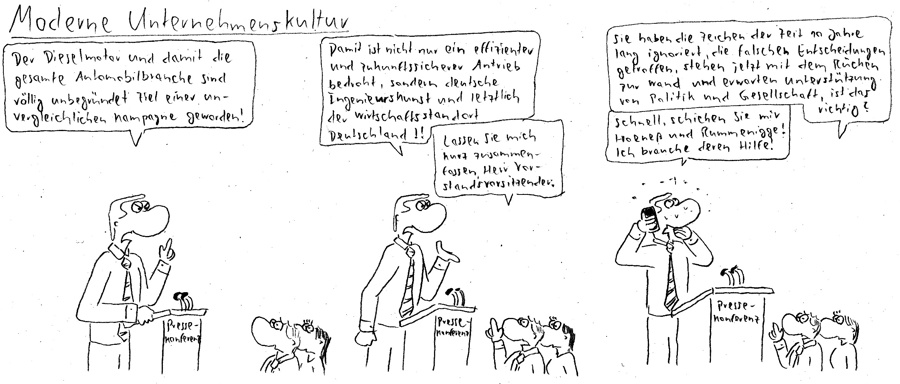 Moderne Unternehmenskultur
Der Dieselmotor und damit die
gesamte Automobilbranche sind
völlig unbegründet Ziel einer un-
vergleichlichen Kampagne geworden!
Presse-
konferenz
Damit ist nicht nur ein effizienter
und zukunftssicherer Antrieb
bedroht, sondern deutsche
Ingenieurskunst und letztlich
der Wirtschaftsstandort
Deutschland!!
Lassen Sie mich
kurz zusammen-
fassen, Herr Vor-
standsvorsitzender.
Presse-
konferenz
Sie haben die Zeichen der Zeit 10 Jahre
lang ignoriert, die falschen Entscheidungen
getroffen, stehen jetzt mit dem Rücken
zur Wand und erwarten Unterstützung
von Politik und Gesellschaft, ist das
richtig?
Schnell, schicken Sie mir
Hoeneß und Rummenigge!
Ich brauche deren Hilfe!
Presse-
konferenz